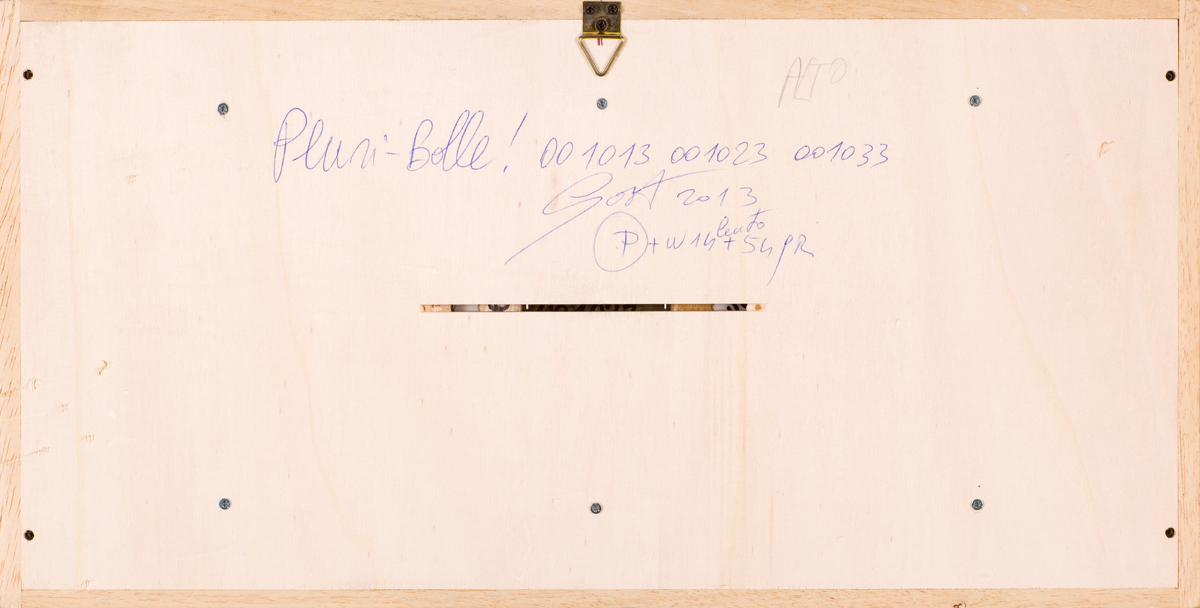 ALTO
Pluri-Bolle! 001013 001023 001033
2013
lento
P + W 14 + 54 gR